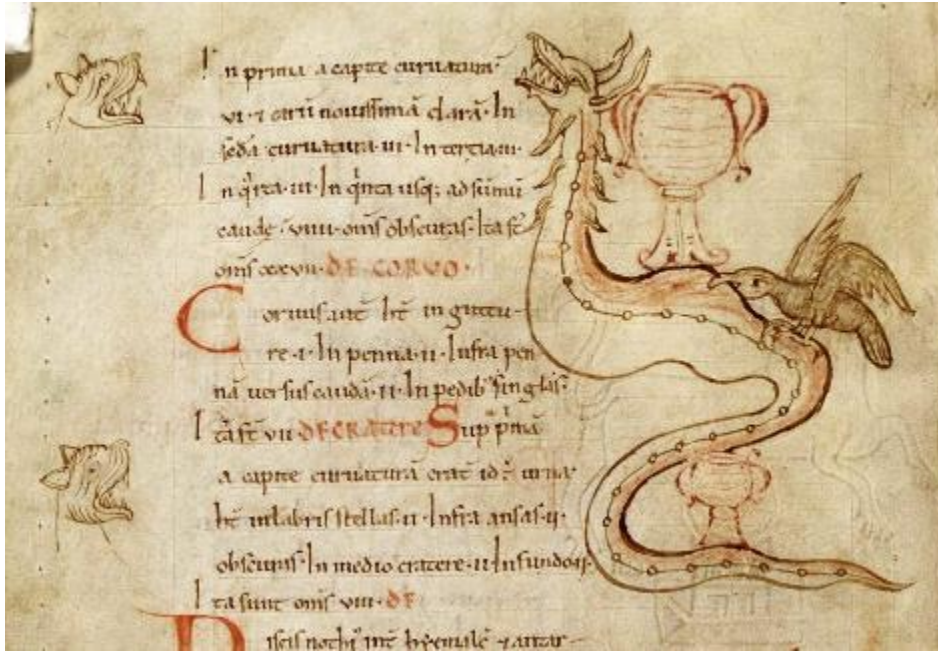 In prima a capite curuatura
vi · 7 earū nouissimā clarā · In
secda curuatura · vi · In tertia · iii ·
In qrta · iii · In qnta usq; ad sūmū
caudę · viiii · om̄s obscuras · Ita st̄
om̄s xxvii · DE CORVO ·
Coruus aut̄ ht̄ in guttu-
re · i · In penna · ii · Infra pen
nā uersus caudā · ii · In pedib singlas ·
Ita st̄ vii DE CRATERE Sup p̄mā
a capite curuaturā crat̄ id ÷ urna ·
ht̄ in labris stellas · ii · Infra ansas · ii ·
obscuras · In medio cratere · ii · In fundo · ii ·
Ita sunt om̄s viii · DE
Piscis nothi int̄ hyemalē 7 antar-